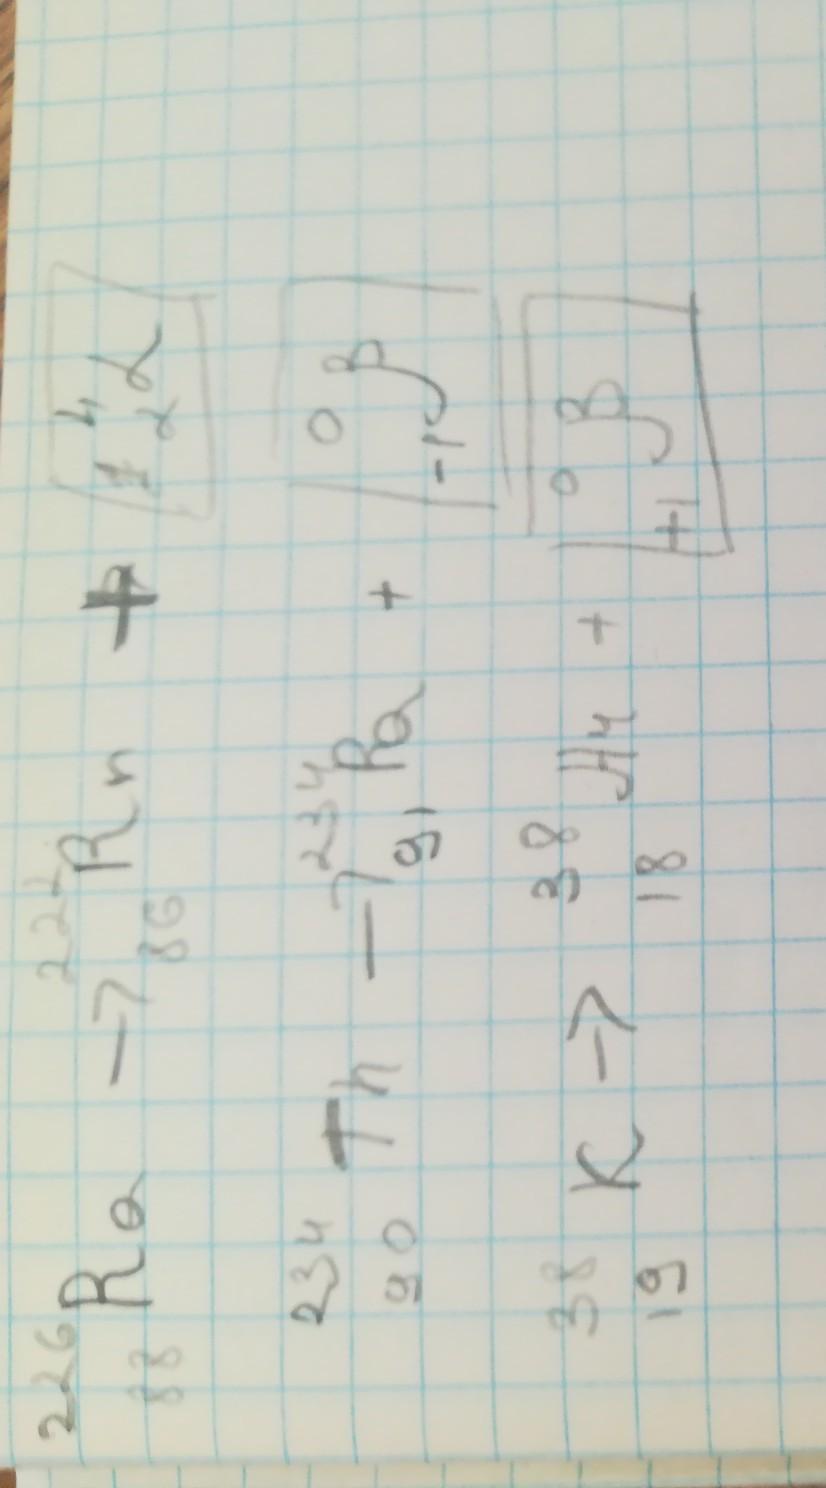 ²²⁶₈₈Ra → ²²²₈₆Rn + ⁴₂α
²³⁴₉₀Th → ²³⁴₉₁Pa + ⁰₋₁β
³⁸₁₉K → ³⁸₁₈ + ⁰₊₁β